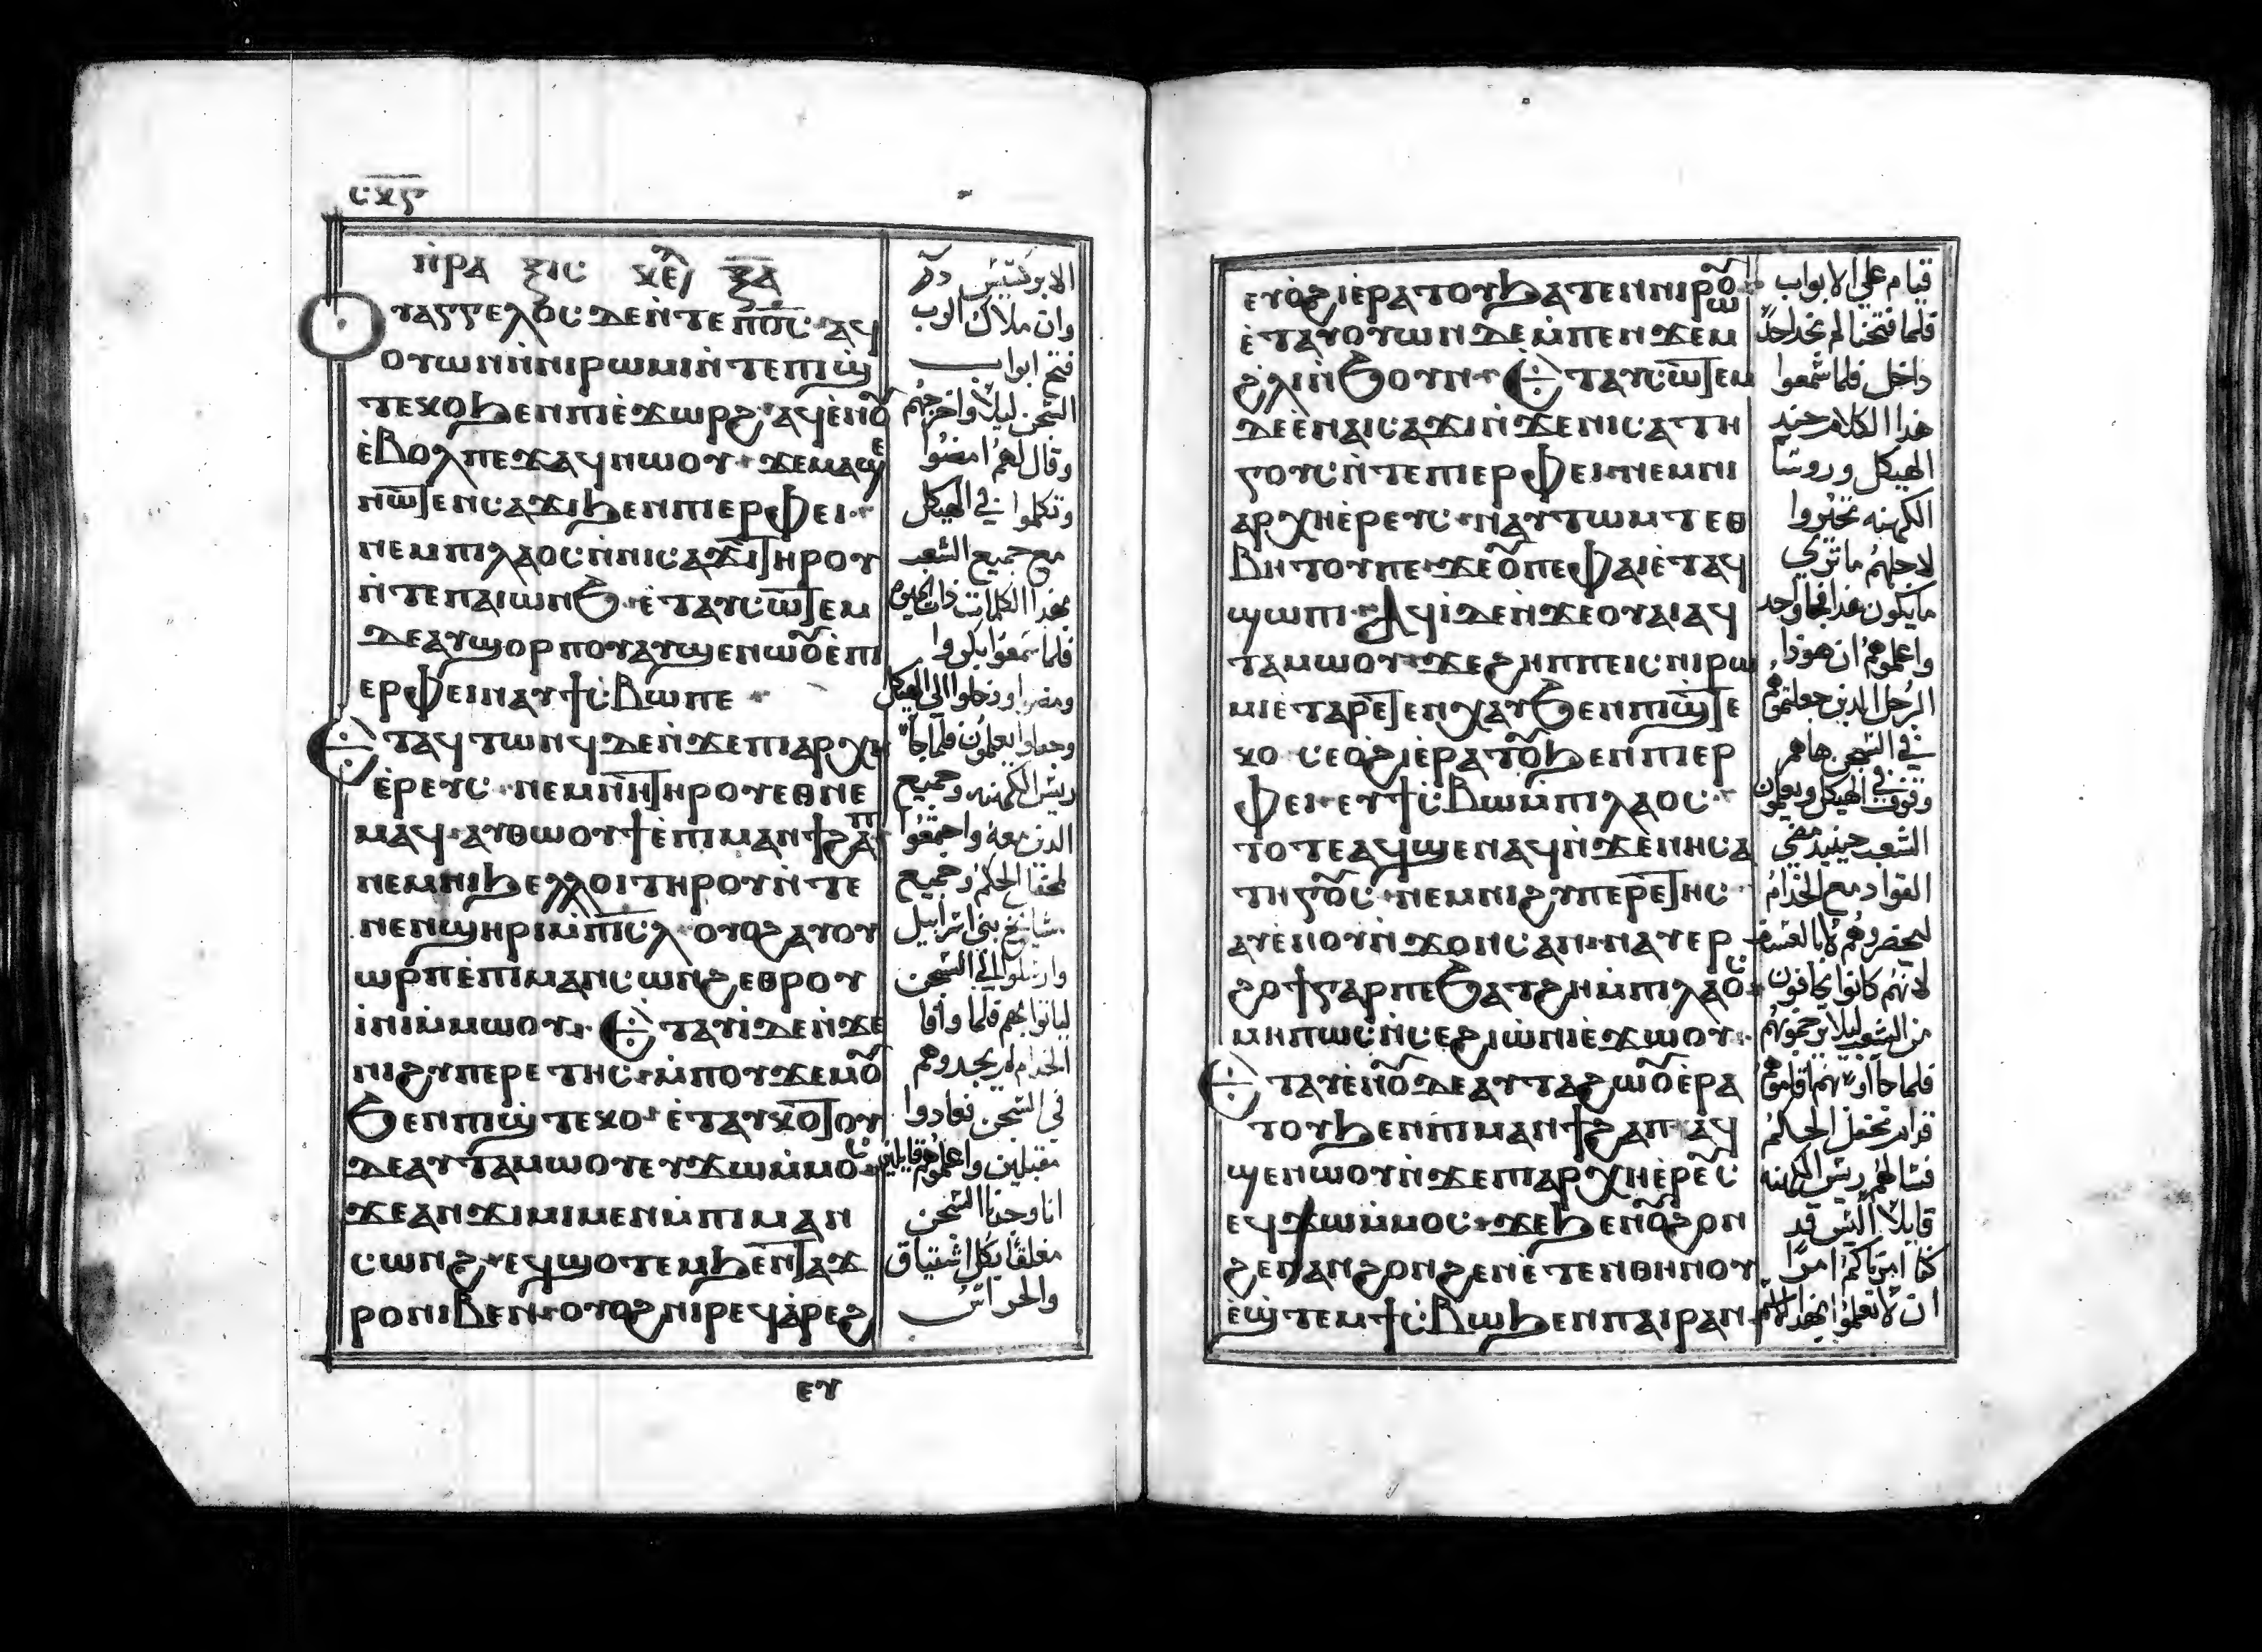 ⲥⲝⲋ
ⲡⲣⲁⲝⲓⲥ ⲕⲉ ⲝⲁ
ⲟⲩⲁⲅⲅⲉⲗⲟⲥ ⲇⲉ ⲛ̀ⲧⲉ ⲡ̅ⲟ̅ⲥ̅ ⲁϥ
ⲟⲩⲱⲛ ⲛ̀ⲛⲓⲣⲱⲙⲓ ⲛ̀ⲧⲉ ⲡⲓϣ̀
ⲧⲉⲕⲟ ϧⲉⲛ ⲡⲓⲉ̀ϫⲱⲣϩ ⲁϥⲉ̀ⲛⲟ̅
ⲉ̀ⲃⲟⲗ ⲡⲉϫⲁϥ ⲛⲱⲟⲩ ϫⲉ ⲙⲁϣⲉ
ⲛⲱ̅ⲧⲉⲛ ⲥⲁϫⲓ ϧⲉⲛ ⲡⲓⲉⲣⲫⲉⲓ
ⲛⲉⲙ ⲡⲓⲗⲁⲟⲥ ⲛ̀ⲛⲓⲥⲁϫⲓ ⲧⲏⲣⲟⲩ
ⲛ̀ⲧⲉ ⲡⲁⲓⲱⲛϧ ⲉ̀ⲧⲁⲩⲥⲱ̅ⲧⲉⲙ
ⲇⲉ ⲁⲩϣⲟⲣⲡⲟⲩ ⲁⲩϣⲉⲛⲱⲟ̅ ⲉ̀ⲡⲓ
ⲉⲣⲫⲉⲓ ⲛⲁⲩϯⲥ̀ⲃⲱ ⲡⲉ
ⲉⲧⲁϥⲧⲱⲛϥ ⲇⲉ ⲛ̀ϫⲉ ⲡⲓⲁⲣⲭⲏ
ⲉ̀ⲣⲉⲩⲥ ⲛⲉⲙ ⲛⲏ ⲧⲏⲣⲟⲩ ⲉⲑⲛⲉ
ⲙⲁϥ ⲁⲩⲑⲱⲟⲩϯ ⲉ̀ⲡⲓⲙⲁⲛϯϩⲁⲡ
ⲛⲉⲙ ⲛⲓϧⲉⲗⲗⲟⲓ ⲧⲏⲣⲟⲩ ⲛ̀ⲧⲉ
ⲛⲉⲛϣⲏⲣⲓ ⲙ̀ⲡⲓⲥ̅ⲗ̅ ⲟⲩⲟϩ ⲁⲩⲟⲩ
ⲱⲣⲡ ⲉ̀ⲡⲓⲙⲁⲛⲥⲱⲛϩ ⲉⲑⲣⲟⲩ
ⲓ̀ⲛⲓ ⲙ̀ⲙⲱⲟⲩ ⲉⲧⲁⲩⲓ̀ ⲇⲉ ⲛ̀ϫⲉ
ⲛⲓϩⲩⲡⲉⲣⲉⲧⲏⲥ ⲙ̀ⲡⲟⲩϫⲉⲙⲟ̅
ϧⲉⲛ ⲡⲓϣ̀ⲧⲉⲕⲟ ⲉ̀ⲧⲁⲩⲕⲟ̅ⲧⲟⲩ
ⲇⲉ ⲁⲩⲧⲁⲙⲱⲟⲩ ⲉⲩϫⲱ ⲙ̀ⲙⲟⲥ
ϫⲉ ⲁⲛϫⲓⲙⲓ ⲙⲉⲛ ⲙ̀ⲡⲓⲙⲁⲛ
ⲥⲱⲛϩ ⲉϥϣⲟⲧⲉⲙ ϧⲉⲛ ⲧⲁϫ
ⲣⲟ ⲛⲓⲃⲉⲛ ⲟⲩⲟϩ ⲛⲓⲣⲉϥⲁ̀ⲣⲉϩ
ⲉⲩ
الابركسيس
وان ملاك الرب
فتح ابواب
السجن ليلا واخرجهم
وقال لهم امضوا
وتكلموا في الهيكل
مع جميع الشعب
بهذا الكلمات ذات الحيوه
فلما سمعوا بكروا
ومضوا ودخلوا الى الهيكل
وجعلوا يعلمون فلما جا
ريس الكهنه وجميع
الذين معه واجتمعوا
لمحفل الحكم وجميع
مشايخ بني اسرائيل
وارسلوا الي السجن
لياتوا بهم فلما وافا
الخدام لم يجدوهم
في السجن فعادوا
مقبلين واعلموهم قايلين
انا وجدنا السجن
مغلقا بكل استيثاق
والحراس
ⲉⲩⲟ̀ϩⲓ ⲉ̀ⲣⲁⲧⲟⲩ ϧⲁⲧⲉⲛ ⲛⲓⲣⲱⲟ̅
ⲉ̀ⲧⲁⲩⲟⲩⲱⲛ ⲇⲉ ⲙ̀ⲡⲉⲛϫⲉⲙ
ϩ̀ⲗⲓ ⲛ̀ϧⲟⲩⲛ ⲉⲧⲁⲩⲥⲱ̅ⲧⲉⲙ
ⲇⲉ ⲉ̀ⲛⲁⲓⲥⲁϫⲓ ⲛ̀ϫⲉ ⲛⲓⲥⲁⲧⲏ
ⲅⲟⲩⲥ ⲛ̀ⲧⲉ ⲡⲓⲉⲣⲫⲉⲓ ⲛⲉⲙ ⲛⲓ
ⲁⲣⲭⲏⲉ̀ⲣⲉⲩⲥ ⲛⲁⲩⲧⲱⲙⲧ ⲉⲑ
ⲃⲏⲧⲟⲩ ⲡⲉ ϫⲉ ⲟ̅ ⲡⲉ ⲫⲁⲓ ⲉ̀ⲧⲁϥ
ϣⲱⲡⲓ ⲁϥⲓ̀ ⲇⲉ ⲛ̀ϫⲉ ⲟⲩⲁⲓ ⲁϥ
ⲧⲁⲙⲱⲟⲩ ϫⲉ ϩⲏⲡⲡⲉ ⲓⲥ ⲛⲓⲣⲱ
ⲙⲓ ⲉ̀ⲧⲁⲣⲉⲧⲉⲛⲭⲁⲩ ϧⲉⲛ ⲡⲓϣ̀ⲧⲉ
ⲕⲟ ⲥⲉⲟ̀ϩⲓ ⲉ̀ⲣⲁⲧⲟ̅ ϧⲉⲛ ⲡⲓⲉⲣ
ⲫⲉⲓ ⲉⲩϯⲥ̀ⲃⲱ ⲙ̀ⲡⲓⲗⲁⲟⲥ
ⲧⲟⲧⲉ ⲁϥϣⲉⲛⲁϥ ⲛ̀ϫⲉ ⲡⲏⲥⲁ
ⲧⲏⲅⲟ̅ⲥ ⲛⲉⲙ ⲛⲓϩⲩⲡⲉⲣⲉⲧⲏⲥ
ⲁⲩⲉ̀ⲛⲟⲩ ⲛ̀ϫⲟⲛⲥ ⲁⲛ ⲛⲁⲩⲉⲣ
ϩⲟϯ ⲅⲁⲣ ⲡⲉ ϧⲁⲧϩⲏ ⲙ̀ⲡⲓⲗⲁⲟⲥ
ⲙⲏⲡⲱⲥ ⲛ̀ⲥⲉϩⲓⲱ̀ⲛⲓ ⲉ̀ϫⲱⲟⲩ
ⲉⲧⲁⲩⲉ̀ⲛⲟ̅ ⲇⲉ ⲁⲩⲧⲁϩⲱⲟ̅ ⲉ̀ⲣⲁ
ⲧⲟⲩ ϧⲉⲛ ⲡⲓⲙⲁⲛϯϩⲁⲡ ⲁϥ
ϣⲉⲛⲱⲟⲩ ⲛ̀ϫⲉ ⲡⲓⲁⲣⲭⲏⲉ̀ⲣⲉ̅ⲥ
ⲉϥϫⲱ ⲙ̀ⲙⲟⲥ ϫⲉ ϧⲉⲛ ⲟ̅ϩⲟⲛ
ϩⲉⲛ ⲁⲛϩⲟⲛϩⲉⲛ ⲉ̀ⲧⲉⲛⲑⲏⲛⲟⲩ
ⲉ̀ϣ̀ⲧⲉⲙϯⲥ̀ⲃⲱ ϧⲉⲛ ⲡⲁⲓⲣⲁⲛ
قيام علي الابواب
فلما فتحنا لم نجد احدا
داخل فلما سمعوا
هذا الكلام جند
الهيكل وروسا
الكهنه تحيروا
لاجلهم ما تري
ما يكون هذا فجا واحد
واعلمهم ان هوذا
الرجل الذين جعلتموهم
في السجن هاهم
وقوف في الهيكل ويعلمون
الشعب حينيذ مضي
القواد مع الخدام
ليحضروهم لا بالغشم
لانهم كانوا يخافون
من الشعب ليلا يرجموهم
فلما جاوا بهم اقاموهم
قدام محفل الحكم
فسالهم ريس الكهنه
قايلا اليس قد
كنا امرناكم امرا
ان لا تعلموا بهذا الاسم